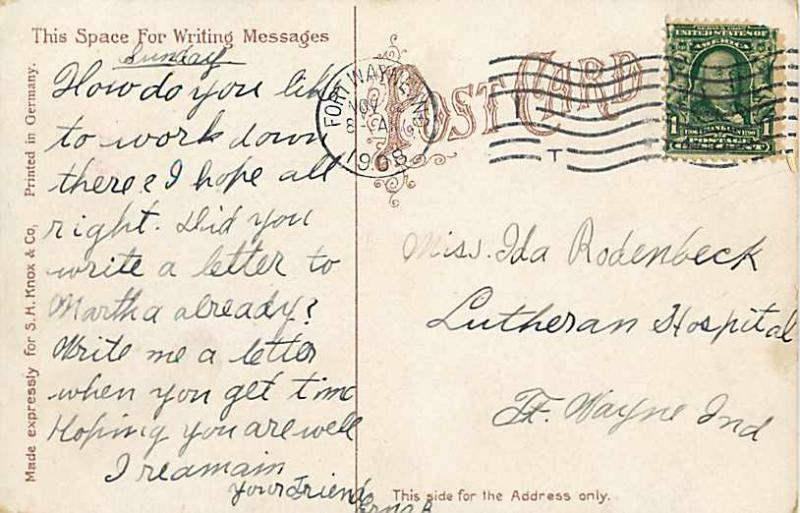 This Space For Writing Messages
Sunday
How do you like
to work down
there? I hope all
right. Did you
write a letter to
Martha already?
Write me a letter
when you get time
Hoping you are well
I reamain
your Friend
Made expressly for S.H. Knox & Co, Printed in Germany.
POST CARD
FORT WAYNE, IND.
NOV
8 AM
1908
T
UNITED STATES OF
AMERICA
1 1
Miss. Ida Rodenbeck
Lutheran Hospital
Ft. Wayne Ind
This side for the Address only.